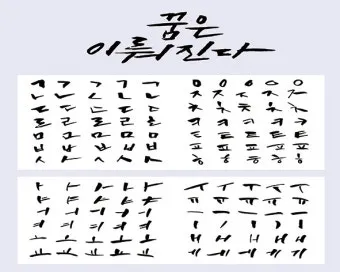 꿈은
이뤄진다
ㄱ ㄱ ㄱ ㄱ ㄱ
ㄴ ㄴ ㄴ ㄴ ㄴ
ㄷ ㄷ ㄷ ㄷ ㄷ
ㄹ ㄹ ㄹ ㄹ ㄹ
ㅁ ㅁ ㅁ ㅁ ㅁ
ㅂ ㅂ ㅂ ㅂ ㅂ
ㅅ ㅅ ㅅ ㅅ ㅅ
ㅇ ㅇ ㅇ ㅇ ㅇ
ㅈ ㅈ ㅈ ㅈ ㅈ
ㅊ ㅊ ㅊ ㅊ ㅊ
ㅋ ㅋ ㅋ ㅋ ㅋ
ㅌ ㅌ ㅌ ㅌ ㅌ
ㅍ ㅍ ㅍ ㅍ ㅍ
ㅎ ㅎ ㅎ ㅎ ㅎ
ㅏ ㅏ ㅏ ㅏ ㅏ
ㅑ ㅑ ㅑ ㅑ ㅑ
ㅓ ㅓ ㅓ ㅓ ㅓ
ㅕ ㅕ ㅕ ㅕ ㅕ
ㅗ ㅗ ㅗ ㅗ ㅗ
ㅛ ㅛ ㅛ ㅛ ㅛ
ㅜ ㅜ ㅜ ㅜ ㅜ
ㅠ ㅠ ㅠ ㅠ ㅠ
ㅡ ㅡ ㅡ ㅡ ㅡ
ㅣ ㅣ ㅣ ㅣ ㅣ
ㅐ ㅐ ㅐ ㅐ ㅐ
ㅔ ㅔ ㅔ ㅔ ㅔ